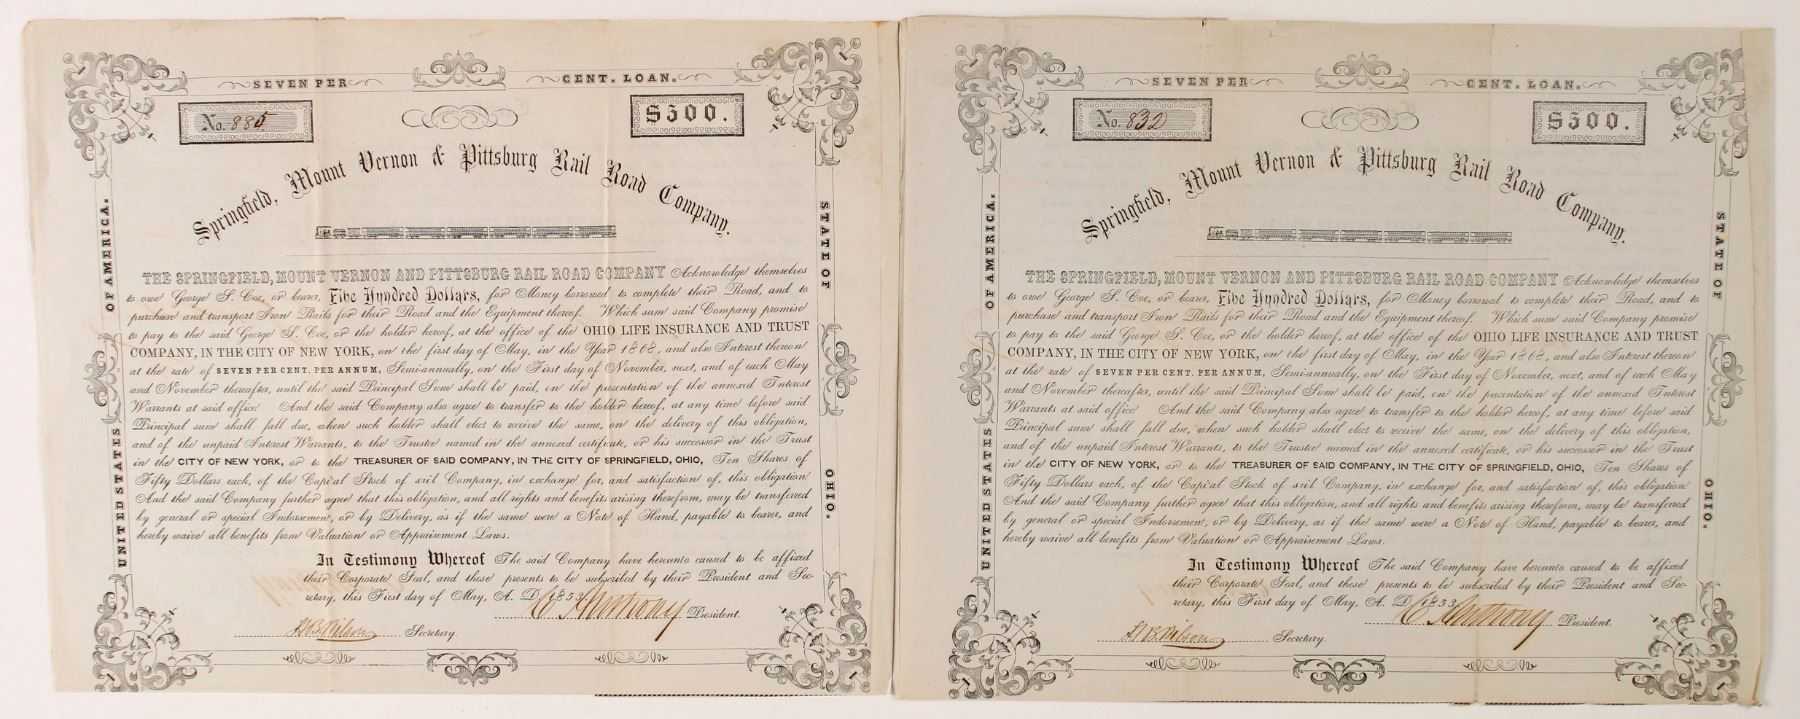 SEVEN PER CENT. LOAN.
No. 885.
$500.
Springfield, Mount Vernon & Pittsburg Rail Road Company.
OF AMERICA.
STATE OF
THE SPRINGFIELD, MOUNT VERNON AND PITTSBURG RAIL ROAD COMPANY Acknowledge themselves
to owe George S. Coe, or bearer, Five Hundred Dollars, for Money borrowed to complete their Road, and to
purchase and transport Iron Rails for their Road and the Equipment thereof. Which sum said Company promise
to pay to the said George S. Coe, or the holder hereof, at the office of the OHIO LIFE INSURANCE AND TRUST
COMPANY, IN THE CITY OF NEW YORK, on the first day of May, in the Year 1868, and also Interest thereon
at the rate of SEVEN PER CENT. PER ANNUM, Semi-annually, on the First day of November, next, and of each May
and November thereafter, until the said Principal Sum shall be paid, on the presentation of the annexed Interest
Warrants at said office And the said Company also agree to transfer to the holder hereof, at any time before said
Principal sum shall fall due, when such holder shall elect to receive the same, on the delivery of this obligation,
and of the unpaid Interest Warrants, to the Trustee named in the annexed certificate, or his successor in the Trust
in the CITY OF NEW YORK, or to the TREASURER OF SAID COMPANY, IN THE CITY OF SPRINGFIELD, OHIO, Ten Shares of
Fifty Dollars each, of the Capital Stock of said Company, in exchange for, and satisfaction of, this obligation
And the said Company further agree that this obligation, and all rights and benefits arising therefrom, may be transferred
by general or special Indorsement, or by Delivery, as if the same were a Note of Hand, payable to bearer, and
hereby waive all benefits from Valuation or Appraisement Laws.
UNITED STATES
OHIO.
In Testimony Whereof The said Company have hereunto caused to be affixed
their Corporate Seal, and these presents to be subscribed by their President and Sec-
retary, this First day of May, A. D. 1853.
C Anthony President.
J.B. Wilson Secretary.
SEVEN PER CENT. LOAN.
No. 832
$500.
Springfield, Mount Vernon & Pittsburg Rail Road Company.
OF AMERICA.
STATE OF
THE SPRINGFIELD, MOUNT VERNON AND PITTSBURG RAIL ROAD COMPANY Acknowledge themselves
to owe George S. Coe, or bearer, Five Hundred Dollars, for Money borrowed to complete their Road, and to
purchase and transport Iron Rails for their Road and the Equipment thereof. Which sum said Company promise
to pay to the said George S. Coe, or the holder hereof, at the office of the OHIO LIFE INSURANCE AND TRUST
COMPANY, IN THE CITY OF NEW YORK, on the first day of May, in the Year 1868, and also Interest thereon
at the rate of SEVEN PER CENT. PER ANNUM, Semi-annually, on the First day of November, next, and of each May
and November thereafter, until the said Principal Sum shall be paid, on the presentation of the annexed Interest
Warrants at said office And the said Company also agree to transfer to the holder hereof, at any time before said
Principal sum shall fall due, when such holder shall elect to receive the same, on the delivery of this obligation,
and of the unpaid Interest Warrants, to the Trustee named in the annexed certificate, or his successor in the Trust
in the CITY OF NEW YORK, or to the TREASURER OF SAID COMPANY, IN THE CITY OF SPRINGFIELD, OHIO, Ten Shares of
Fifty Dollars each, of the Capital Stock of said Company, in exchange for, and satisfaction of, this obligation
And the said Company further agree that this obligation, and all rights and benefits arising therefrom, may be transferred
by general or special Indorsement, or by Delivery, as if the same were a Note of Hand, payable to bearer, and
hereby waive all benefits from Valuation or Appraisement Laws.
UNITED STATES
OHIO.
In Testimony Whereof The said Company have hereunto caused to be affixed
their Corporate Seal, and these presents to be subscribed by their President and Sec-
retary, this First day of May, A. D. 1853.
C Anthony President.
J.B. Wilson Secretary.